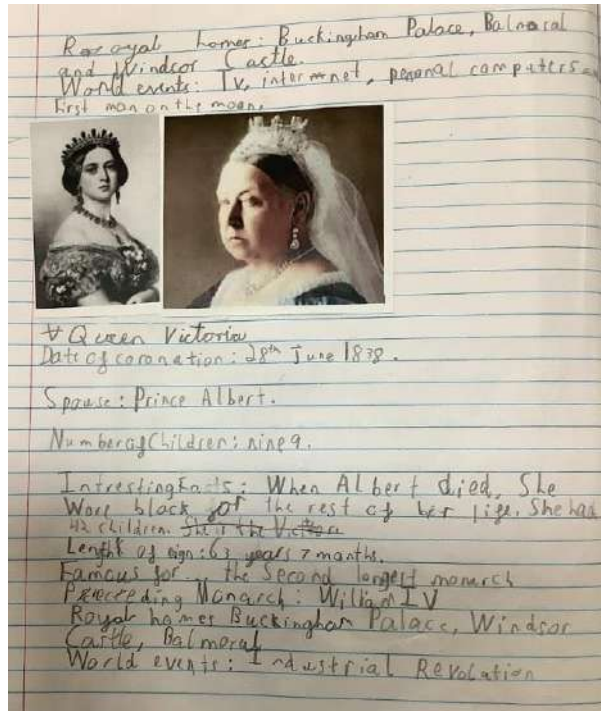 Royal homes: Buckingham Palace, Balmoral
and Windsor Castle.
World events: Tv, internet, personal computers
First man on the moon.
Queen Victoria
Date of coronation: 28th June 1838.
Spouse: Prince Albert.
Number of Children: nine 9.
Intresting Facts: When Albert died, She
Wore black for the rest of her life. She had
42 children. She is the Victora
Length of rign: 63 years 7 months.
Famous for... the Second longest monarch
Preceeding Monarch: William IV
Royal homes Buckingham Palace, Windsor
Castle, Balmoral
World events: Industrial Revolution